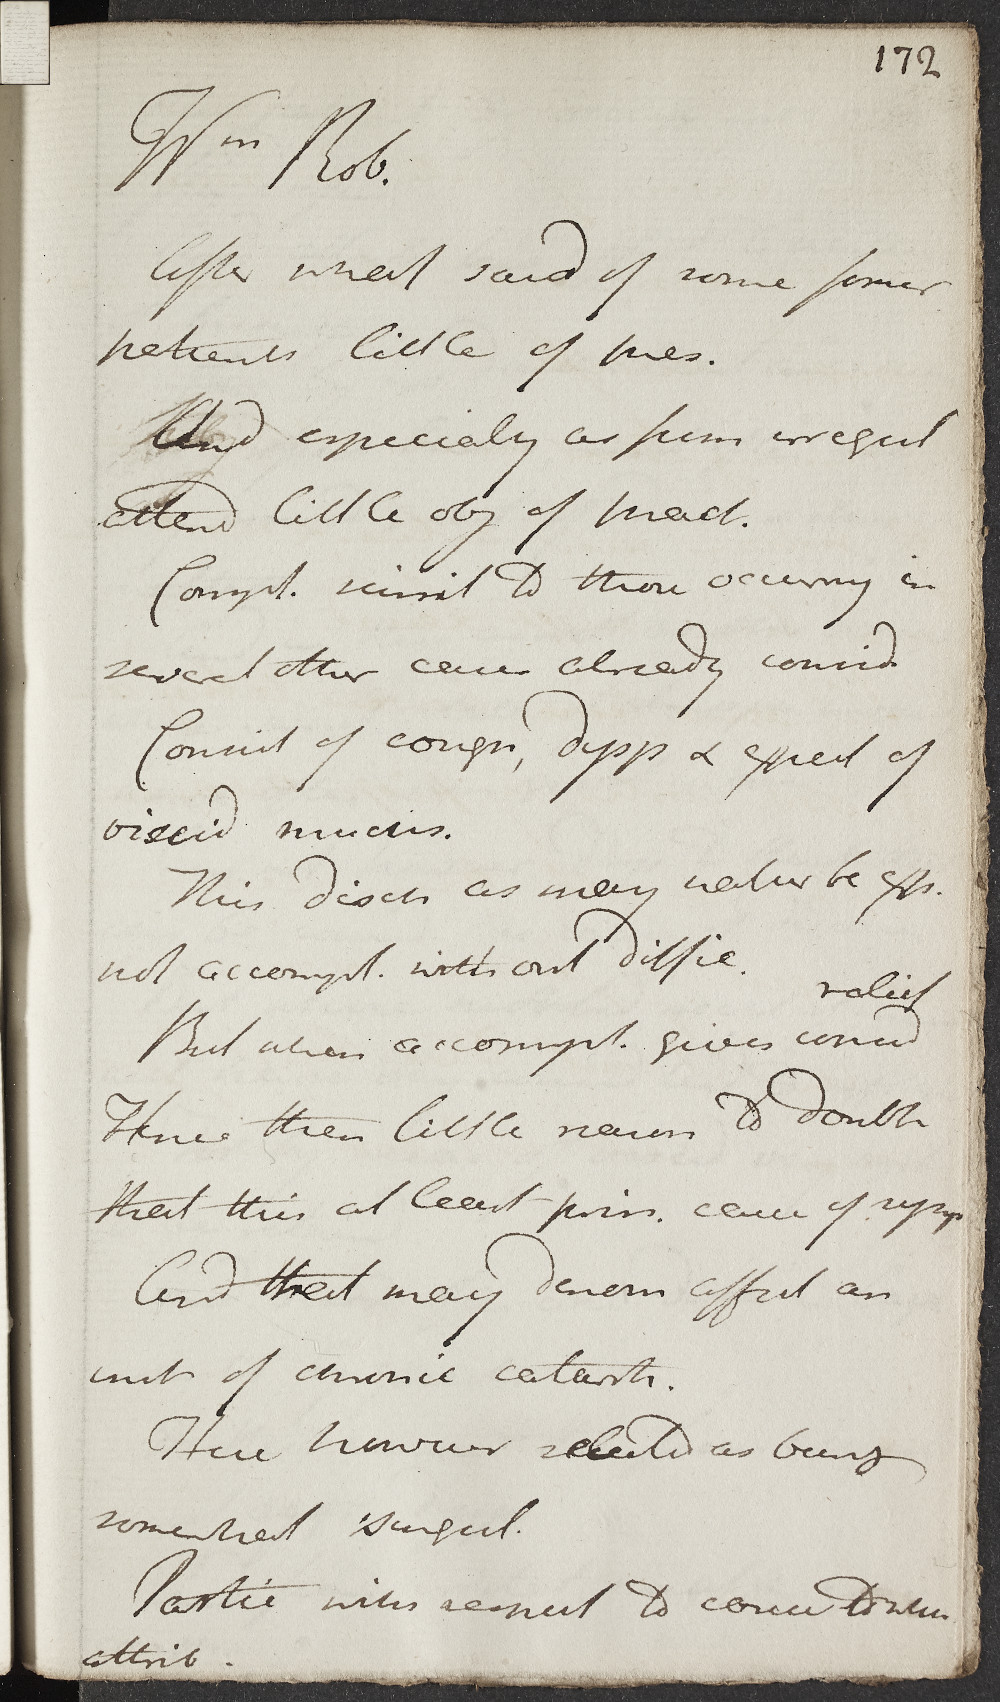 172
Wm Rob.
After what said of some former
patients little of pres.
And especially as from irregul
attend little obj of pract.
Compt. simil to those occurring in
several other cases already consid
Consist of cough, dysp & expect of
viscid mucus.
This disch as may natur be exp.
not accompl. without diffic.
relief
But when accompt. gives consid
Hence then little reason to doubt
that this at least prin. cause of
And that may denom affect an
inst of chronic catarrh.
Here however selected as being
somewhat singul.
Partic with respect to cause to whic
attrib.